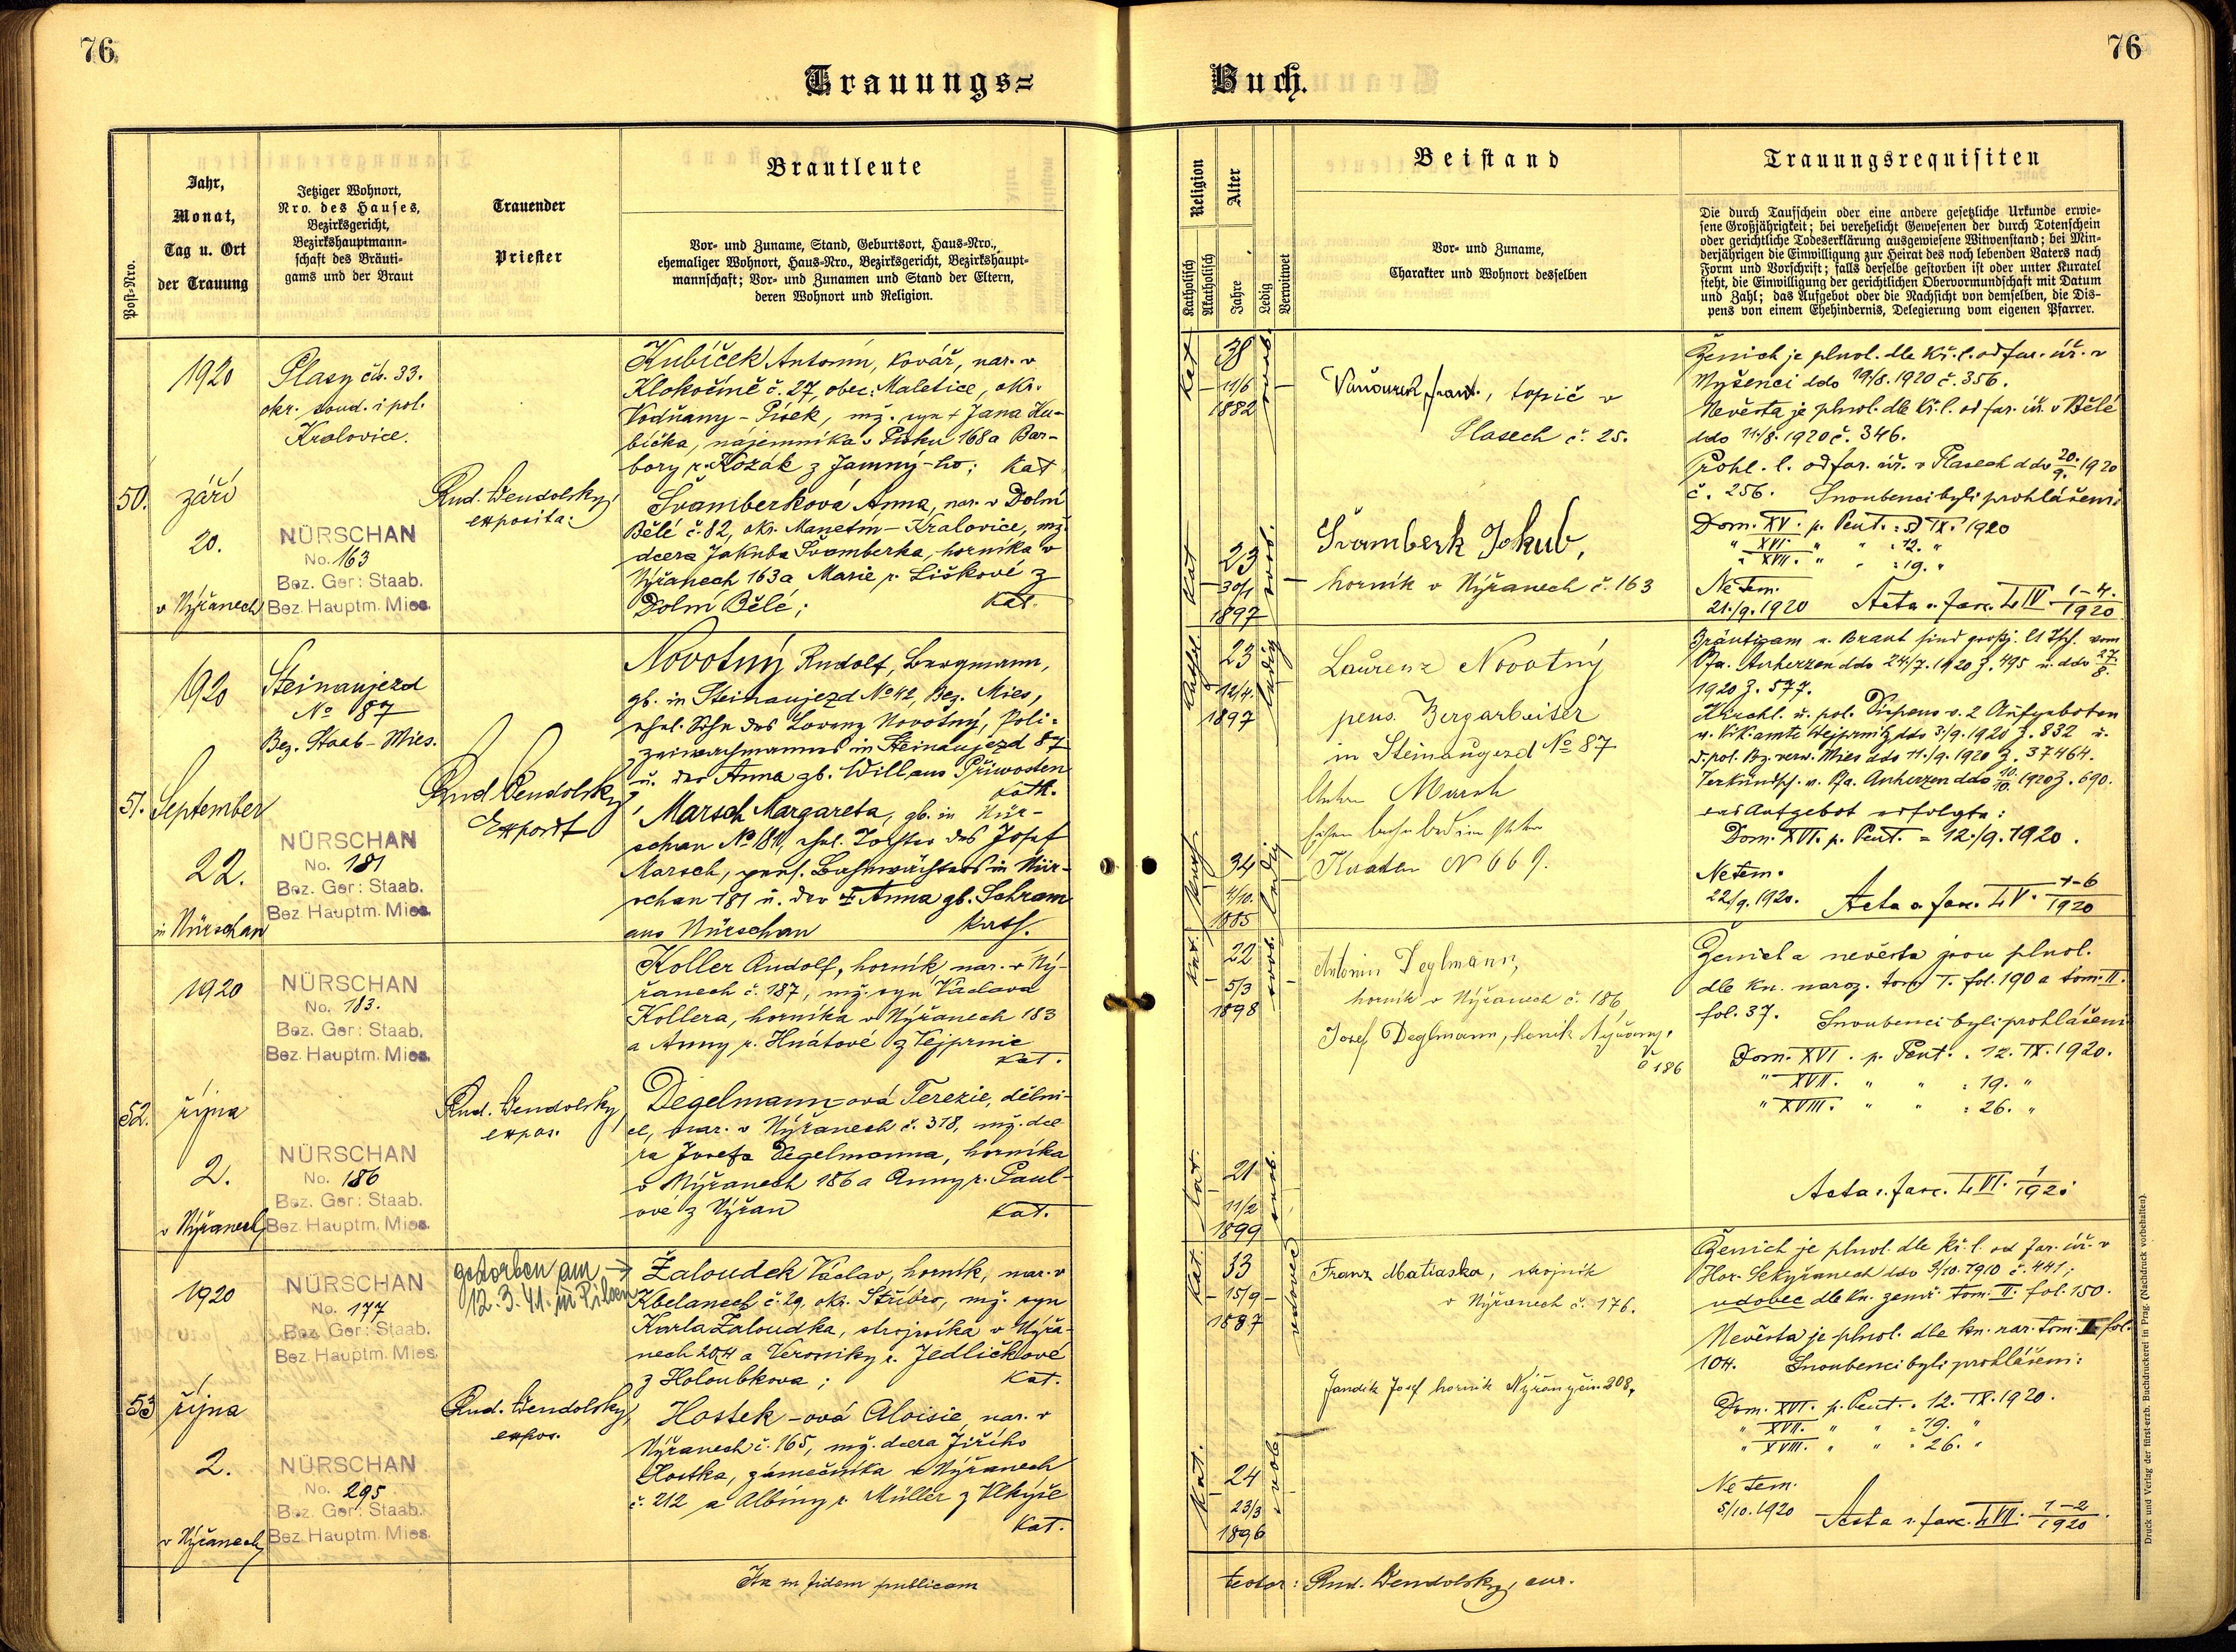 76.
76
Trauungs=
Buch.
Post=Nro.
Jahr,
Monat,
Tag u. Ort
der Trauung
Jetziger Wohnort,
Nro. des Hauses,
Bezirksgericht,
Bezirkshauptmann=
schaft des Bräuti=
gams und der Braut
Trauender
Priester
Brautleute
Vor= und Zuname, Stand, Geburtsort, Haus=Nro.,
ehemaliger Wohnort, Haus=Nro., Bezirksgericht, Bezirkshaupt=
mannschaft; Vor= und Zunamen und Stand der Eltern,
deren Wohnort und Religion.
Religion
Katholisch
Akatholisch
Alter
Jahre
Ledig
Verwitwet
Beistand
Vor= und Zuname,
Charakter und Wohnort desselben
Trauungsrequisiten
Die durch Taufschein oder eine andere gesetzliche Urkunde erwie=
sene Großjährigkeit; bei verehelicht Gewesenen der durch Totenschein
oder gerichtliche Todeserklärung ausgewiesene Witwenstand; bei Min=
derjährigen die Einwilligung zur Heirat des noch lebenden Vaters nach
Form und Vorschrift; falls derselbe gestorben ist oder unter Kuratel
steht, die Einwilligung der gerichtlichen Obervormundschaft mit Datum
und Zahl; das Aufgebot oder die Nachsicht von demselben, die Dis=
pens von einem Ehehindernis, Delegierung vom eigenen Pfarrer.
50.
1920
září
20.
v Nýřanech
Plasy čís. 33.
okr. soud. i pol.
Kralovice.
NÜRSCHAN
No. 163
Bez. Ger: Staab.
Bez. Hauptm. Mies.
Rud. Wendolsky,
exposita.
Kubíček Antonín, kovář, nar. v
Klokočíně č. 27, obec: Maletice, okr.
Vodňany - Písek, mž. syn † Jana Ku-
bíčka, nájemníka v Písku 168 a Bar-
bory r. Kozák z Jamný-ho; Kat
Švamberková Anna, nar. v Dolní
Bělé č. 82, okr. Manetín - Kralovice, mž.
dcera Jakuba Švamberka, horníka v
Nýřanech 163 a Marie r. Liškové z
Dolní Bělé; Kat.
Kat
38
11/6
1882
svob.
Kat
23
30/1
1897
svob.
Vaňourek Frant., topič v
Plasech č. 25.
Švamberk Jakub,
horník v Nýřanech č. 163
Ženich je plnol. dle kř. l. od far. úř. v
ddo 19/8. 1920 č. 356.
Nevěsta je plnol. dle kř. l. od far. úř. v Bělé
ddo 11./8. 1920 č. 346.
Prohl. l. od far. úř. v Plasech ddo 20./9. 1920
č. 256. Snoubenci byli prohlášeni:
Dom. XV. p. Pent. : 5. IX. 1920
" XVI. " " : 12. "
" XVII. " " : 19. "
Ne tem.
21./9. 1920 Acta v fasc. L IV 1-4./1920
51.
1920
September
22.
in Nürschan
Steinaujezd
No 87
Bez. Staab - Mies.
NÜRSCHAN
No. 181
Bez. Ger: Staab.
Bez. Hauptm. Mies.
Rud Wendolsky,
Exposit
Novotný Rudolf, Bergmann,
gb. in Steinaujezd No 42, Bez. Mies,
ehel. Sohn des Lorenz Novotný, Poli=
zeiwachmannes in Steinaujezd 87
u. der Anna gb. Will aus Přiwosten
kath.
Marsch Margareta, gb. in Nür-
schan No 181, ehel. Tochter des Josef
Marsch, pens. Bahnwächters in Nür-
schan 181 u. der † Anna gb. Schram
aus Nürschan kath.
23
12/4.
1897
ledig
34
4/10.
1885
ledig
Laurenz Novotný
pens. Bergarbeiter
in Steinaugezd No 87
Marsch
N 669.
Bräutigam u. Braut sind großj. lt Tsch. vom
Pfa. Auherzen ddo 24./7. 1920 Z. 495 u. ddo 27./8.
1920 Z. 577.
Kirchl. u. pol. Dispens v. 2 Aufgeboten
v. Vik. amte Wejprnitz ddo 3./9. 1920 Z. 832 u.
d. pol. Bz. verw. Mies ddo 11./9. 1920 Z. 37464.
Verkündsch. v. Pfa. Auherzen ddo 10./10. 1920 Z. 690.
das Aufgebot erfolgte:
Dom. XVI. p. Pent. = 12./9. 1920.
Ne tem.
22./9. 1920. Acta v fasc. L V. 1-6/1920
52.
1920
října
2.
v Nýřanech
NÜRSCHAN
No. 183.
Bez. Ger: Staab.
Bez. Hauptm. Mies.
NÜRSCHAN
No. 186
Bez. Ger: Staab.
Bez. Hauptm. Mies.
Rud. Wendolsky,
expos.
Koller Rudolf, horník, nar. v Ný-
řanech č. 187, mž. syn Václava
Kollera, horníka v Nýřanech 183
a Anny r. Hnátové z Vejprnic
Kat.
Degelmann-ová Terezie, dělni-
ce, nar. v Nýřanech č. 318, mž. dce-
ra Josefa Degelmanna, horníka
v Nýřanech 186 a Anny r. Paul-
ové z Nýřan Kat.
Kat.
22
5/3
1898
svob.
Kat.
21
11/2
1899
svob.
Antonín Deglmann,
horník v Nýřanech č. 186
Josef Deglmann, horník Nýřany,
č 186
Ženich a nevěsta jsou plnol.
dle kn. naroz. tom. I. fol. 190 a tom. II.
fol. 37. Snoubenci byli prohlášeni
Dom. XVI. p. Pent. : 12. IX. 1920.
" XVII. " " : 19. "
" XVIII. " " : 26. "
Acta v. fasc. L VI. 1/1920
53
1920
října
2.
v Nýřanech
NÜRSCHAN
No. 177
Bez. Ger: Staab.
Bez. Hauptm. Mies.
NÜRSCHAN
No. 295
Bez. Ger: Staab.
Bez. Hauptm. Mies.
gestorben am →
12. 3. 41. in Pilsen
Rud. Wendolsky,
expos.
Žaloudek Václav, horník, nar. v
Kbelanech č. 29, okr. Stříbro, mž. syn
Karla Žaloudka, strojníka v Nýřa-
nech 204 a Veroniky r. Jedličkové
z Holoubkova; Kat.
Hostek-ová Aloisie, nar. v
Nýřanech č. 165, mž. dcera Jiřího
Hostka, zámečníka v Nýřanech
č. 212 a Albíny r. Müller z Vlkýše
Kat.
Kat.
33
15/9
1887
vdovec
Kat.
24
23/3
1896
svob.
Franz Matiaska, strojník
v Nýřanech č. 176.
Jandík Josef horník Nýřany čís. 308.
Ženich je plnol. dle kř. l. od far. úř. v
Hor. Sekyřanech ddo 3/10. 1910 č. 441;
udovec dle kn. zemř. tom. II. fol. 150.
Nevěsta je plnol. dle kn. nar. tom. I. fol.
104. Snoubenci byli prohlášeni:
Dom. XVI. p. Pent. : 12. IX. 1920.
" XVII. " " : 19. "
" XVIII. " " : 26. "
Ne tem.
5/10. 1920 Acta v. fasc. L VII. 1-2/1920.
Ita in fidem publicam
testor: Rud. Wendolsky, cur.
Druck und Verlag der fürst-erzb. Buchdruckerei in Prag. (Nachdruck vorbehalten).